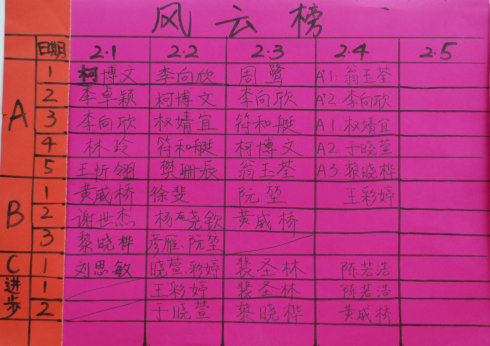 风云榜
日期 2.1 2.2 2.3 2.4 2.5
A 1 柯博文 李向欣 周鹭 A1 翁玉荃
2 李卓颖 柯博文 李向欣 A2 李向欣
3 李向欣 权靖宜 符和艇 A1 权靖宜
4 林玲 符和艇 柯博文 A2 于晓萱
5 王忻翎 樊珊辰 翁玉荃 A3 黎晓桦
B 1 黄威桥 徐斐 阮堃 王彩婷
2 谢世杰 杨尧钦 黄威桥
3 黎晓桦 彦雁 阮堃
C 1 刘思敏 晓萱彩婷 裴圣林 陈若浩
进步 1 王彩婷 裴圣林 陈若浩
2 于晓萱 黎晓桦 黄威桥